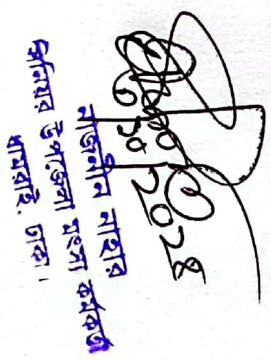 ২০২৪
নাজনীন নাহার
সিনিয়র উপজেলা মৎস্য কর্মকর্তা
ধামরাই, ঢাকা।